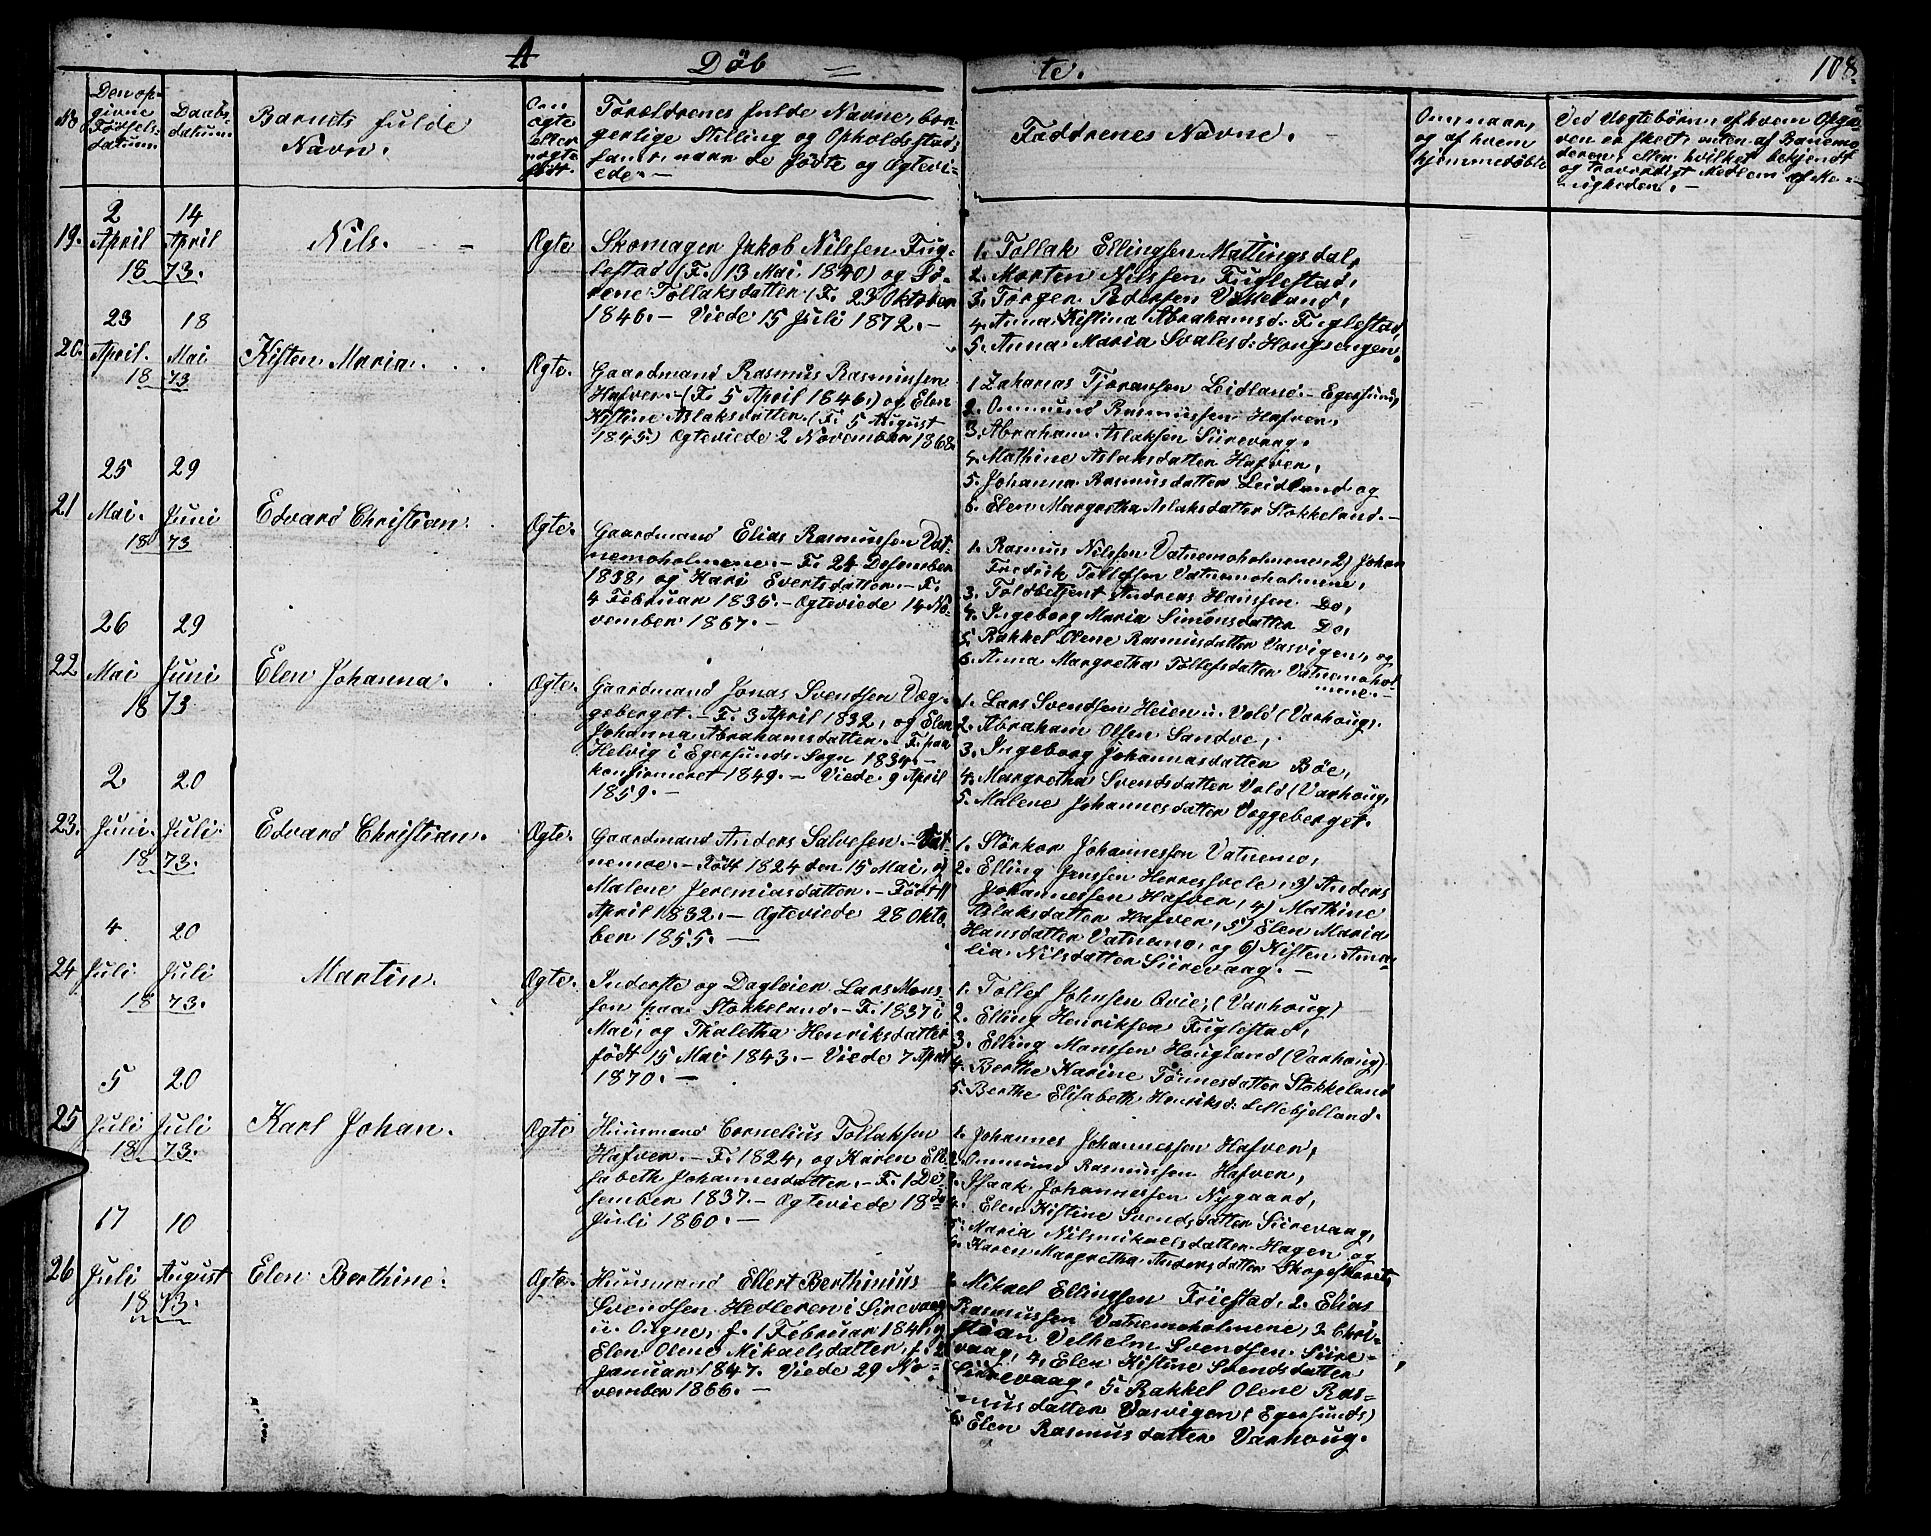 A
Døb = te.
108.
No
Den op-
givne
Fødsels-
datum.
Daabs-
datum.
Barnets fulde
Navn.
Om
ægte
eller
uægte
født.
Forældrenes fulde Navne, bor-
gerlige Stilling og Opholdssted,
samt naar de fødte og Ægtevi-
ede.-
Faddrenes Navne.
Om, naar,
og af hvem
hjemmedøbt.
Ved Uægtebørn, af hvem Opga-
ven er skeet, enten af Barnemo-
deren, eller hvilket bekjendt
og troværdigt Medlem af Me-
nigheden.-
19.
2
April
14
April
1873.
Nils.
Ægte
Skomager Jakob Nilssen Fug-
lestad (F. 13 Mai 1840) og Sø-
rene Tollaksdatter (F. 23 Oktober
1846.- Viede 15 Juli 1872.-
1. Tollak Ellingsen Mattingsdal,
2. Morten Nilssen Fuglestad,
3. Torger Pedersen
4. Anna Kistina Abrahamsd. Fuglestad,
5. Anna Maria Svalesd. Hougsengen.
20.
23
April.
18
Mai
1873
Kisten Maria.
Ægte.
Gaardmand Rasmus Rasmussen
Hafver.-(F. 5 April 1846.) og Elen
Kistine Aslaksdatter. (F. 5 August
1845.) Ægteviede 2 November 1868.
1 Zaharias Tjoransen Leidland.- Egersund,
2. Ommund Rasmussen Hafver,
3. Abraham Aslaksen Siirevaag,
4. Mathine Aslaksdatter Hafver,
5. Johanna Rasmusdatter Leidland og
6. Elen Margretha Aslaksdatter Stokkeland.-
21
25
Mai.
29
Juni
1873
Edvard Christian.
Ægte.
Gaardmand Elias Rasmussen Vat-
nemoholmene.- F. 24 Desember
1838, og Kari Evertsdatter.- F.
4 Februar 1835.- Ægteviede 14 No-
vember 1867.-
1. Rasmus Nilssen Vatnemoholmene, 2) Johan
Fredrik Tollefsen Vatnemoholmene,
3. Toldbetjent Andreas Hanssen Do,
4. Ingeborg Maria Simonsdatter Do,
5. Rakkel Olene Rasmusdatter Vasvigen, og
6. Anna Margretha Tollefsdatter Vatnemohol-
mene.-
22
26
Mai
29
Juni
1873
Elen Johanna.
Ægte.
Gaardmand Jonas Svendsen Væg-
geberget.- F. 3 April 1832, og Elen
Johanna Abrahamsdatter.- F. paa
Helvig i Egersunds Sogn 1834.-
konfirmeret 1849.- Viede 9 April
1859.-
1. Lars Svendsen Heien u. Vold (Varhoug),
2. Abraham Olsen Sandve,
3. Ingeborg Johannasdatter Bøe,
4. Margretha Svendsdatter Vold (Varhoug,
5. Malene Johannesdatter Væggeberget.
23.
2
Juni.
20
Juli.
1873.
Edvard Christian.
Ægte.
Gaardmand Anders Salvesen.- Vat-
nemoe.- Født 1824 den 15 Mai, og
Malene Jeremiasdatter.- Født 11
April 1832.- Ægteviede 28 Okto-
ber 1855.-
1. Størkor Johannessen Vatnemo,
2. Elling Janssen Herresvele, 3) Anders
Johannessen Hafver, 4) Mathine
Aslaksdatter Hafver, 5) Elen Maria
Hansdatter Vatnemo, og 6) Kisten Ama-
lia Nilsdatter Siirevaag.-
24
4
Juli
20
Juli
1873.
Martin.
Ægte.
Inderste og Dagleier Lars Mons-
sen paa Stokkeland.- F. 1837 i
Mai, og Thaletha Henriksdatter
født 15 Mai 1843.- Viede 7 April
1870.-
1. Tollef Johnsen Qvie, (Varhoug)
2. Elling Henriksen Fuglestad,
3. Elling Monssen Hougland (Varhoug)
4. Berthe Karine Tønnesdatter Stokkeland
5. Berthe Elisabeth Henriksd. Lillebjelland.
25
5
Juli
20
Juli
1873.
Karl Johan.
Ægte
Huusmand Cornelius Tollaksen
Hafver.- F. 1824, og Karen Eli-
sabeth Johannesdatter.- F. 1 De-
sember 1837.- Ægteviede 18de
Juli 1860.-
1. Johannes Johannessen Hafver,
2. Ommund Rasmussen Hafver,
3. Isaak Johannessen Nygaard,
4. Elen Kistine Svendsdatter Siirevaag,
5. Maria Nilsmikaelsdatter Hagen og
6. Karen Margretha Andersdatter
26
17
Juli
10
August
1873.
Elen Berthine.
Ægte.
Huusmand Ellert Berthinius
Svendsen Hedleren i Sirevaag
u. Oigne, f. 1 Februar 1841, og
Elen Olene Mikaelsdatter, f. 2
Januar 1847. Viede 29 No-
vember 1866.-
1. Mikael Ellingsen Friestad, 2. Elias
Rasmussen Vatnemoholmene, 3. Chri-
stian Velhelm Svendsen Siire-
vaag, 4, Elen Kistine Svendsdatter
Siirevaag, 5. Rakkel Olene Ras-
musdatter Vasvigen (Egersunds)
6. Elen Rasmusdatter Varhoug.